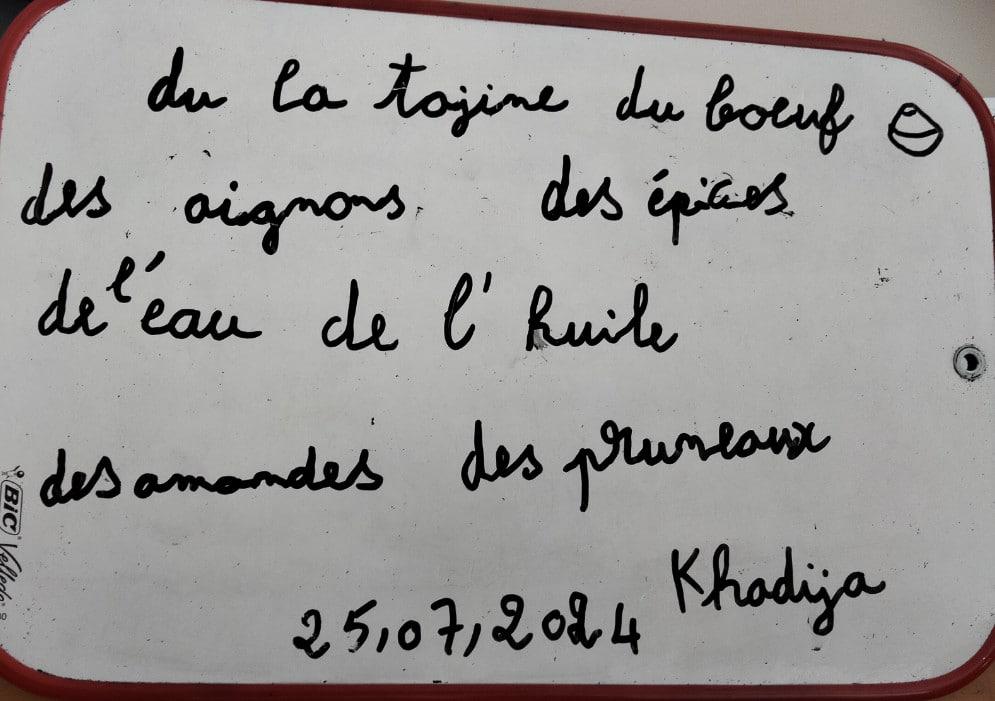 du la tajine du boeuf
des oignons des épices
de l'éau de l'huile
des amandes des pruneaux
Khadija
25,07,2024
BIC Velleda